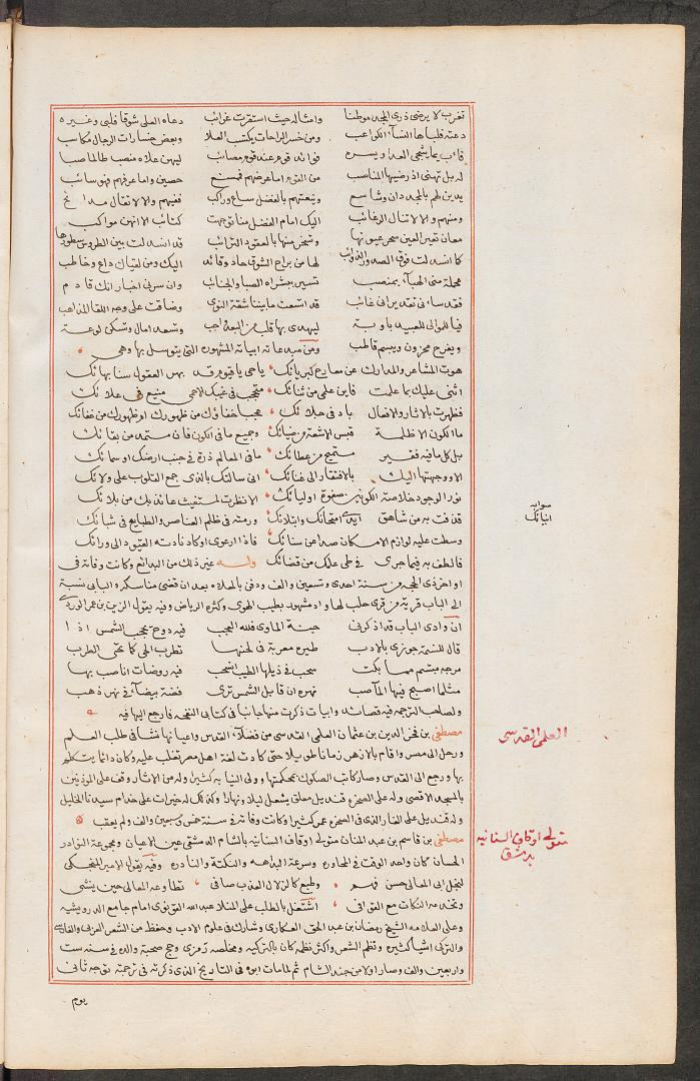 تغرب لا يرضى ذرى المجد موطنا وامثاله حيث استقرت غرائب دعاه العلى شوقا فلبى وغيره
دعته فلباها الفتا الكواعب ومن خسر الراحات يكتب العلا وبعض خسارات الرجال مكاسب
فوائد قوم عند قوم مصائب ليهن علاه منصب طالما صبا
له بل تهنى اذ رضيها المناصب حصين واما عرفهم فهو سائب
يدين لهم بالمجد دان وشاسع وينعتهم بالفضل ساع وراكب ففيهم والا لا تقال مدائح
ومنهم والا لا تنال الرغائب اليك امام الفضل منا توجهت كتائب الا انهن مواكب
معان تعير العين سحر عيونها وتسخر منها بالعقود الترائب قد انسدلت بين الطروس سطورها
كما انسدلت فوق الصدور الذوائب لها من براح الشوق حاد وقائد اليك ومن لقياك داع وخاطب
محملة منى الهناء بمنصب تسير ببشراه الصبا والجنائب وان سرنى اخبار انك قادم
فقد ساءنى تقديرانى غائب قد اتسعت ما بيننا شقة النوى وضاقت على وجه اللقا المذاهب
ليهدى بها قلب من البعد واجب وتسعد امال وتسكن لوعة
ويفرح محزون ويبسم قاطب ومن مبدعاته ابياته المشهورة التى يتوسل بها وهى
هوت المشاعر والمدارك عن معارج كبريائك ياحى ياقيوم قد بهر العقول سنا بهائك
اثنى عليك بما علمت فاين علمى من ثنائك متحجب فى غيبك الاحمى منيع فى علائك
فظهرت بالاثار والافعال باد فى جلائك عجبا خفاؤك من ظهورك او ظهورك من خفائك
ما الكون الا ظلمة قبس الاشعة من ضيائك وجميع ما فى الكون فان مستمد من بقائك
بل كل ما فيه فقير مستميح من عطائك ما فى العوالم ذرة فى جنب ارضك او سمائك
الا ووجهتها اليك بالافتقار الى غنائك انى سالتك بالذى جمع القلوب على ولائك
نور الوجود خلاصة الكونين صفوة اوليائك الا نظرت لمستغيث عائذ بك من بلائك
قذفت به من شاهق ايدى امتحانك وابتلائك ورمته فى ظلم العناصر والطبايع فى شبائك
صوابه
انبائك
وسطت عليه لوازم الامكان صدا عن سنائك فاذا ارعوى او كاد نادته القيود الى ورائك
فالطف به فيما جرى فى طى علمك من قضائك وله غير ذلك من البدائع وكانت وفاته فى
اواخر ذى الحجه من سنة احدى وتسعين والف ودفن بالمعلاه بعد ان قضى مناسكه والبابى نسبة
الى الباب قرية من قرى حلب لها واد مشهور بطيب الهوى وكثره الرياض وفيه يقول الزين بن عمر الوردى
ان وادى الباب قد اذكرنى جنة الماوى فلله العجب فيه دوح يحجب الشمس اذا
قال للنسمة جوزى بالادب طيره معربة فى لحنها تطرب الحى كما تحى الطرب
مرجه مبتسم مما بكت سحب فى ذيلها الطيب انسحب فيه روضات انا صب بها
مثلما اصبح فيها الماء صب نهره ان قابل الشمس ترى فضة بيضاء فى نهر ذهب
ولصاحب الترجمه فيه قصائد وابيات ذكرت منها جانبا فى كتابى النفحه فارجع اليها فيه
العلمى القدسى
مصطفى بن فخر الدين بن عثمان العلمى القدسى من فضلاء القدس واعيانها نشا فى طلب العلم
ورحل الى مصر واقام بالازهر زمانا طويلا حتى كادت لغة اهل مصر تغلب عليه وكان دائما يتكلم
بها ورجع الى القدس وصار كاتب الصكوك بمحكمتها وولى النيابه كثيرا وله من الاثار وقف على الموذنين
بالمسجد الاقصى وله على الصخره قنديل معلق يشعل ليلا ونهارا وكذلك له خيرات على خدام سيدنا الخليل
وله قنديل على الغار الذى فى الصخره عمر كثيرا وكانت وفاته فى سنة خمس وسبعين والف ولم يعقب
متولى اوقاف السنانيه
بدمشق
مصطفى بن قاسم بن عبد المنان متولى اوقاف السنانية بالشام الدمشقى عين الاعيان ومجموعة النوادر
الحسان كان واحد الوقت فى المحاوره وسرعة البداهه والنكتة والنادره وفيه يقول الامير المنجكى
لنجل ابى المعالى حسن فهم وطبع كالزلال العذب صافى تطاوعه المعالى حين ينشى
وتخدمه النكات مع القوافى اشتغل بالطلب على المنلا عبد الله القونوى امام جامع الدرويشيه
وعلى العلامه الشيخ رمضان بن عبد الحق العكارى وشارك فى علوم الادب وحفظ من الشعر العربى والفارسى
والتركى اشيا كثيره ونظم الشعر واكثر نظمه كان بالتركيه ومخلصه رمزى وحج صحبة والده فى سنة ست
واربعين والف وصار اولا من جند الشام ثم لما مات ابوه فى التاريخ الذى ذكرته فى ترجمته توجه ثانى
يوم